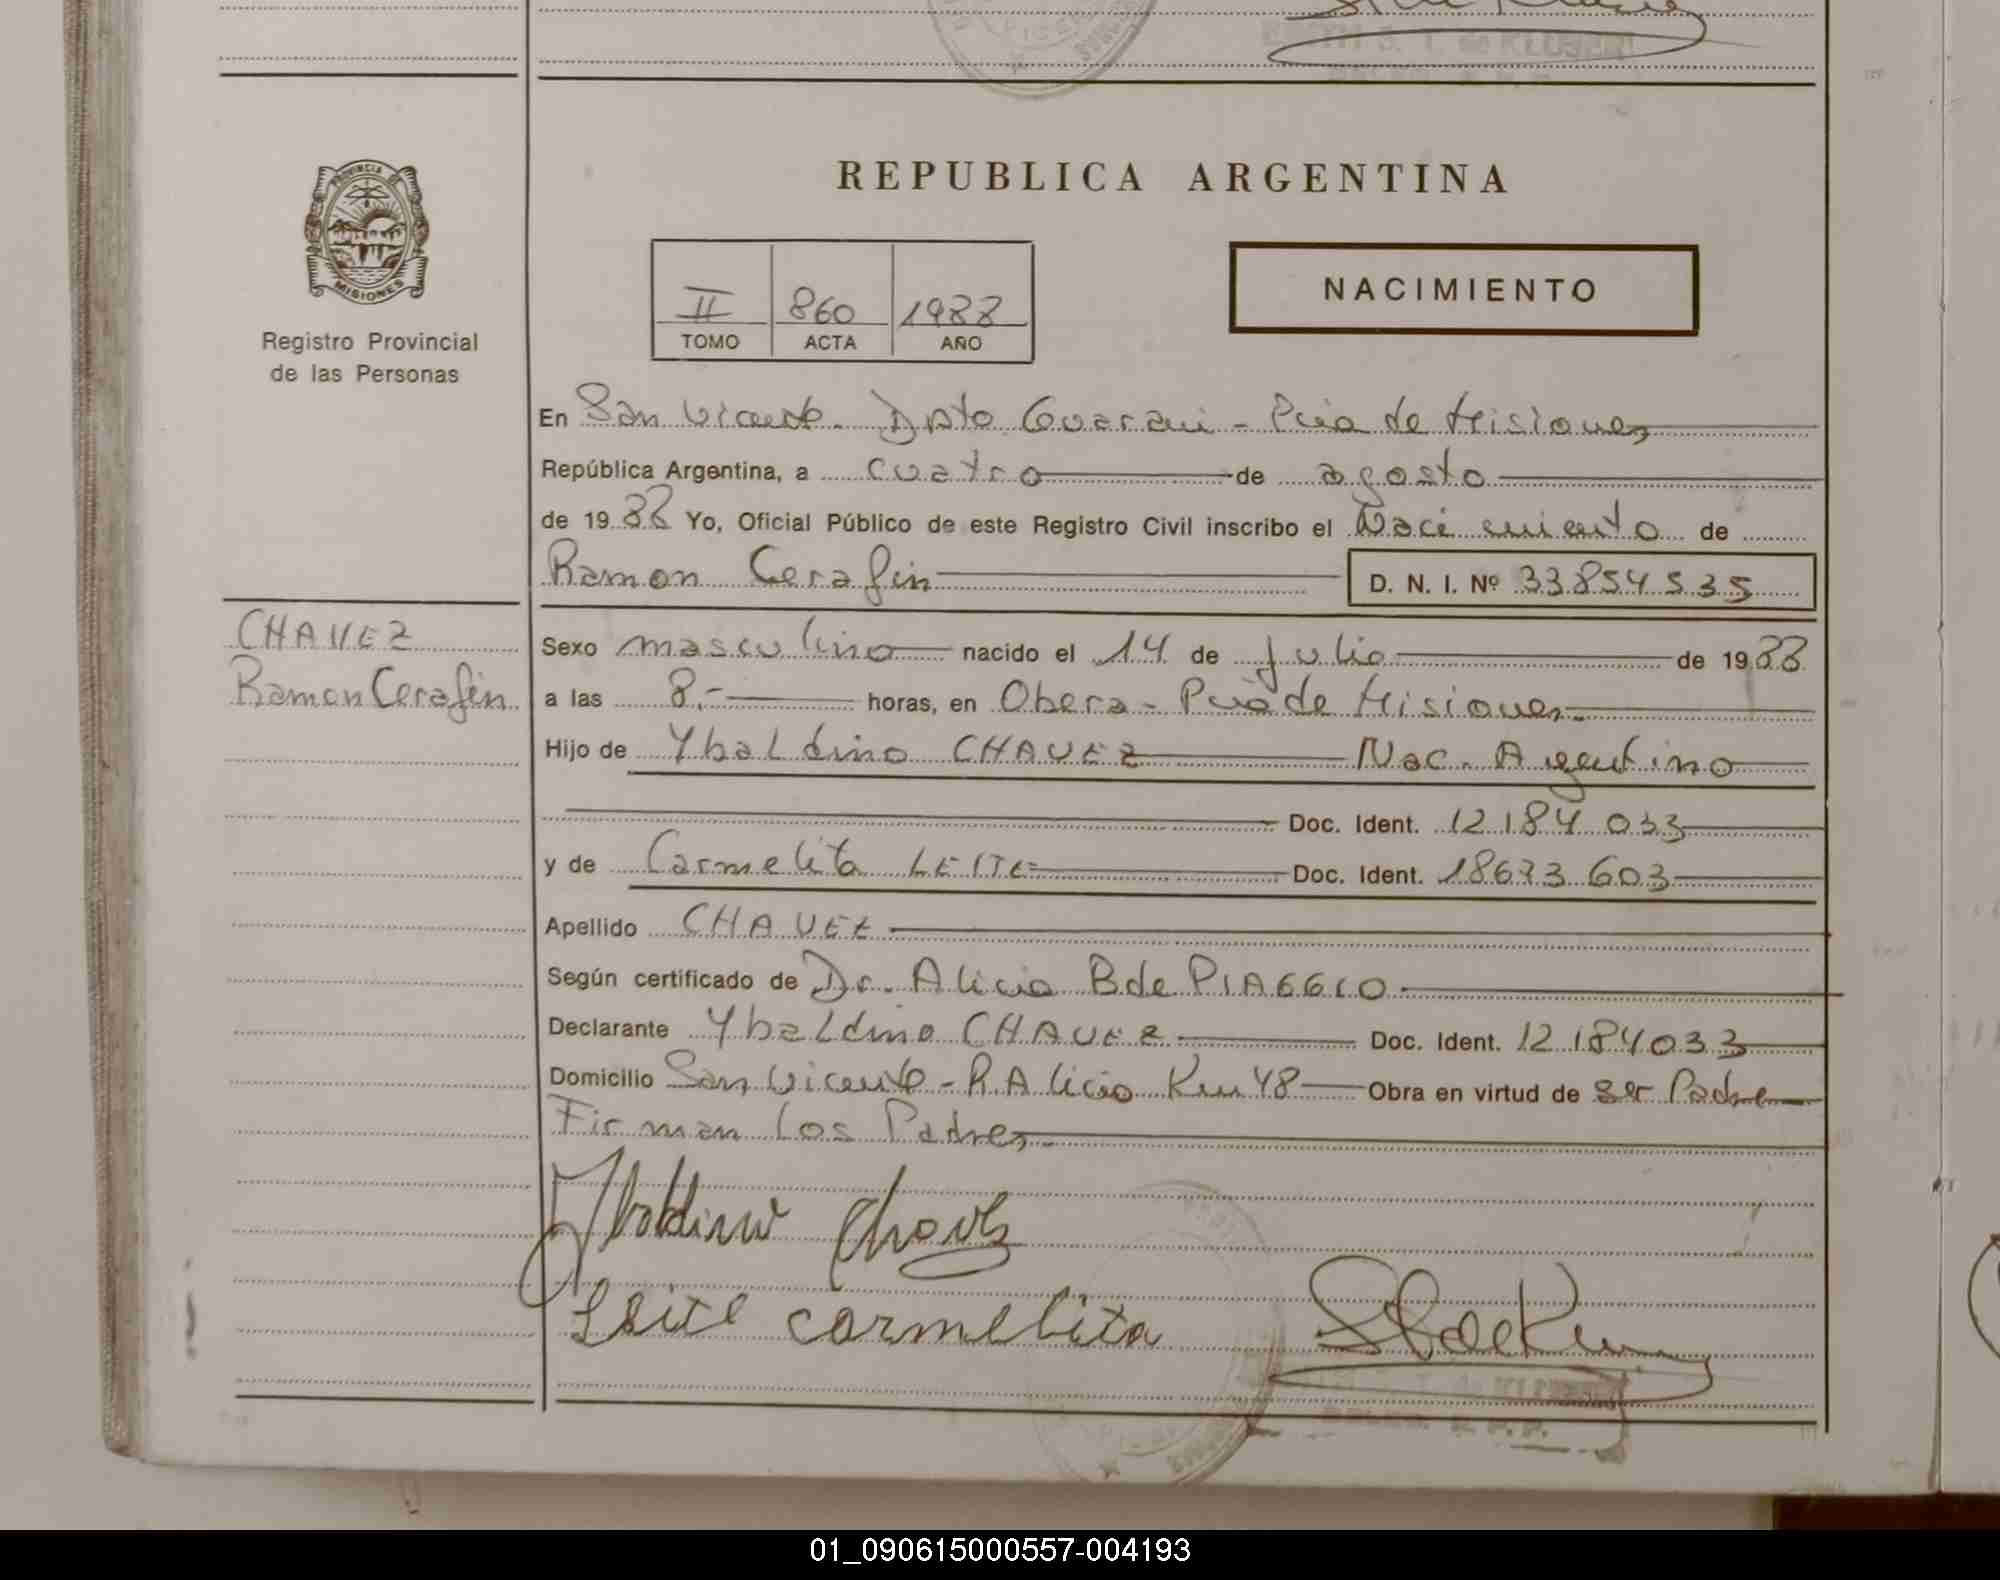 REPUBLICA ARGENTINA
PROVINCIA DE
MISIONES
Registro Provincial
de las Personas
II 860 1988
TOMO ACTA AÑO
NACIMIENTO
En San Vicente - Dpto Guarani - Pcia de Misiones
República Argentina, a cuatro de agosto
de 1988 Yo, Oficial Público de este Registro Civil inscribo el Nacimiento de
Ramon Cerafin D. N. I. Nº 33854535
CHAVEZ
Ramon Cerafin
Sexo masculino nacido el 14 de Julio de 1988
a las 8.- horas, en Obera - Pcia de Misiones.
Hijo de Ybaldino CHAVEZ Nac. Argentino
Doc. Ident. 12 184 033
y de Carmelita LEITE Doc. Ident. 18673 603
Apellido CHAVEZ
Según certificado de Dr. Alicia B de PIAGGIO
Declarante Ybaldino CHAVEZ Doc. Ident. 12 184033
Domicilio San Vicente - R. Alicia Km 48 Obra en virtud de ser Padre
Firman los Padres
Ybaldino Chavez
Leite carmelita
01_090615000557-004193